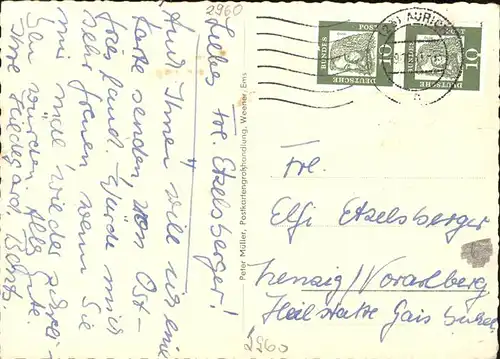 2960
Liebes Frl. Etzelsberger!
Auch Ihnen will ich eine
Karte senden von Ost-
friesland. Würde mich
sehr freuen wenn Sie
mir mal wieder schrei-
ben würden. Alles Gute
Ihre Hildegard
Peter Müller, Postkartengroßhandlung, Weener/Ems
(23) AURICH
DEUTSCHE
BUNDES
POST
10
DEUTSCHE
BUNDES
POST
10
Frl.
Elfi Etzelsberger
/Vorarlberg
Heilstätte Gais
2960